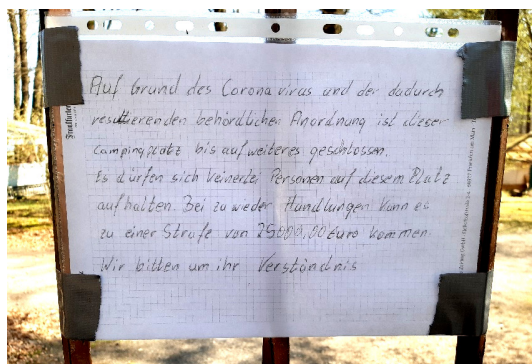 Auf Grund des Corona virus und der dadurch
resultierenden behördlichen Anordnung ist dieser
campingplatz bis auf weiteres geschlossen.
Es dürfen sich keinerlei Personen auf diesem Platz
aufhalten. Bei zu wieder Handlungen kann es
zu einer Strafe von 25000,00 Euro kommen.
Wir bitten um ihr Verständnis